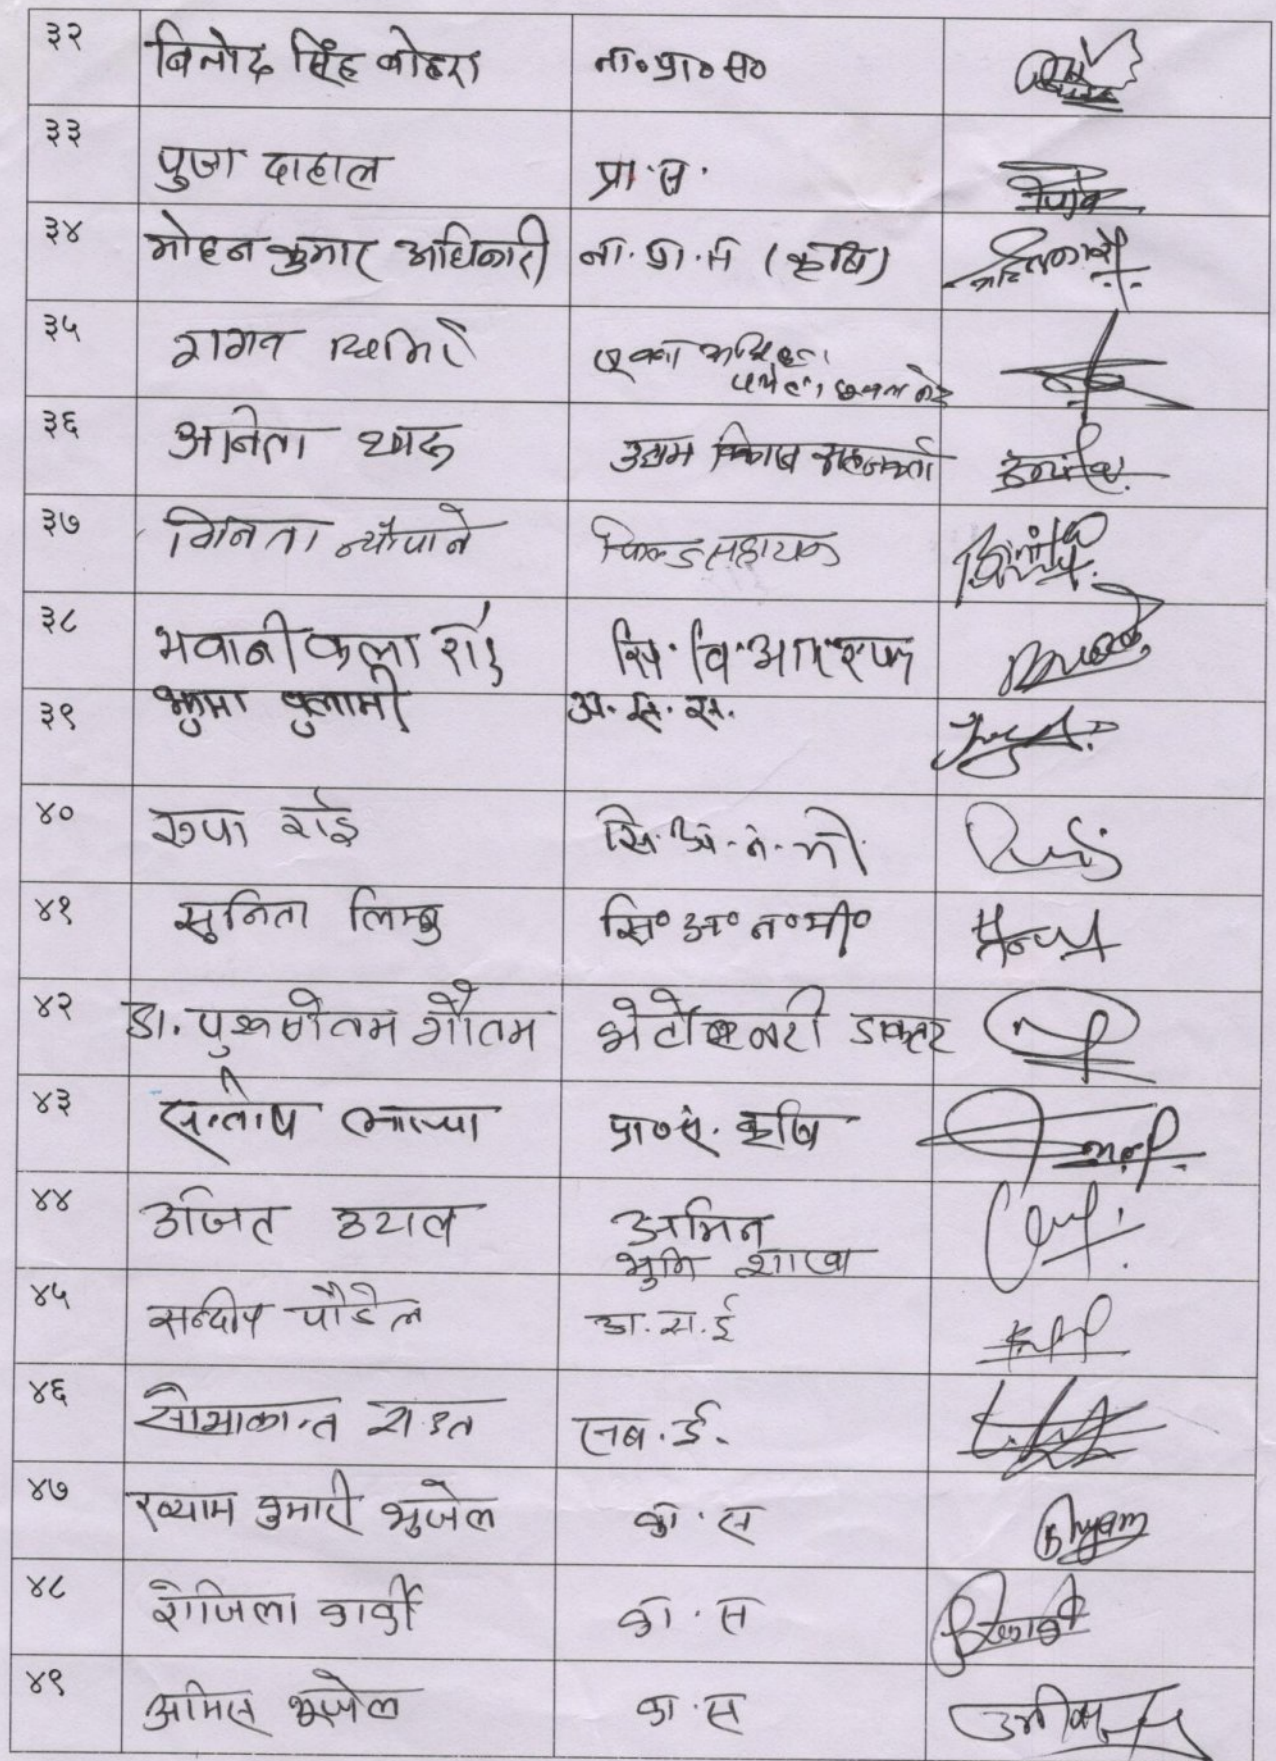 ३२ बिनोद सिंह बोहरा ना०प्रा०स०
३३ पुजा दाहाल प्रा.स.
३४ मोहन कुमार अधिकारी ना.प्रा.स (कृषि)
३५
३६ अनिता उद्यम विकास सहजकर्ता
३७ विनिता न्यौपाने फिल्ड सहायक
Binita
३८ भवानी कला राई सि.वि.
३९ झुमा पुलामी अ.स.स.
४० रुपा राई सि.अ.न.मी.
४१ सुनिता लिम्बु सि०अ०न०मी०
४२ डा. पुरुषोतम गौतम भेटेरिनरी डाक्टर
४३ सन्तोष प्रा०स. कृषि
४४ अजित अमिन
भुमि शाखा
४५ सन्दीप पौडेल अ.स.ई
४६ सोभाकान्त राउत सब.ई.
४७ ख्याम कुमारी भुजेल का.स
४८ रोजिला कार्की का.स
४९ अमिस भुजेल का.स